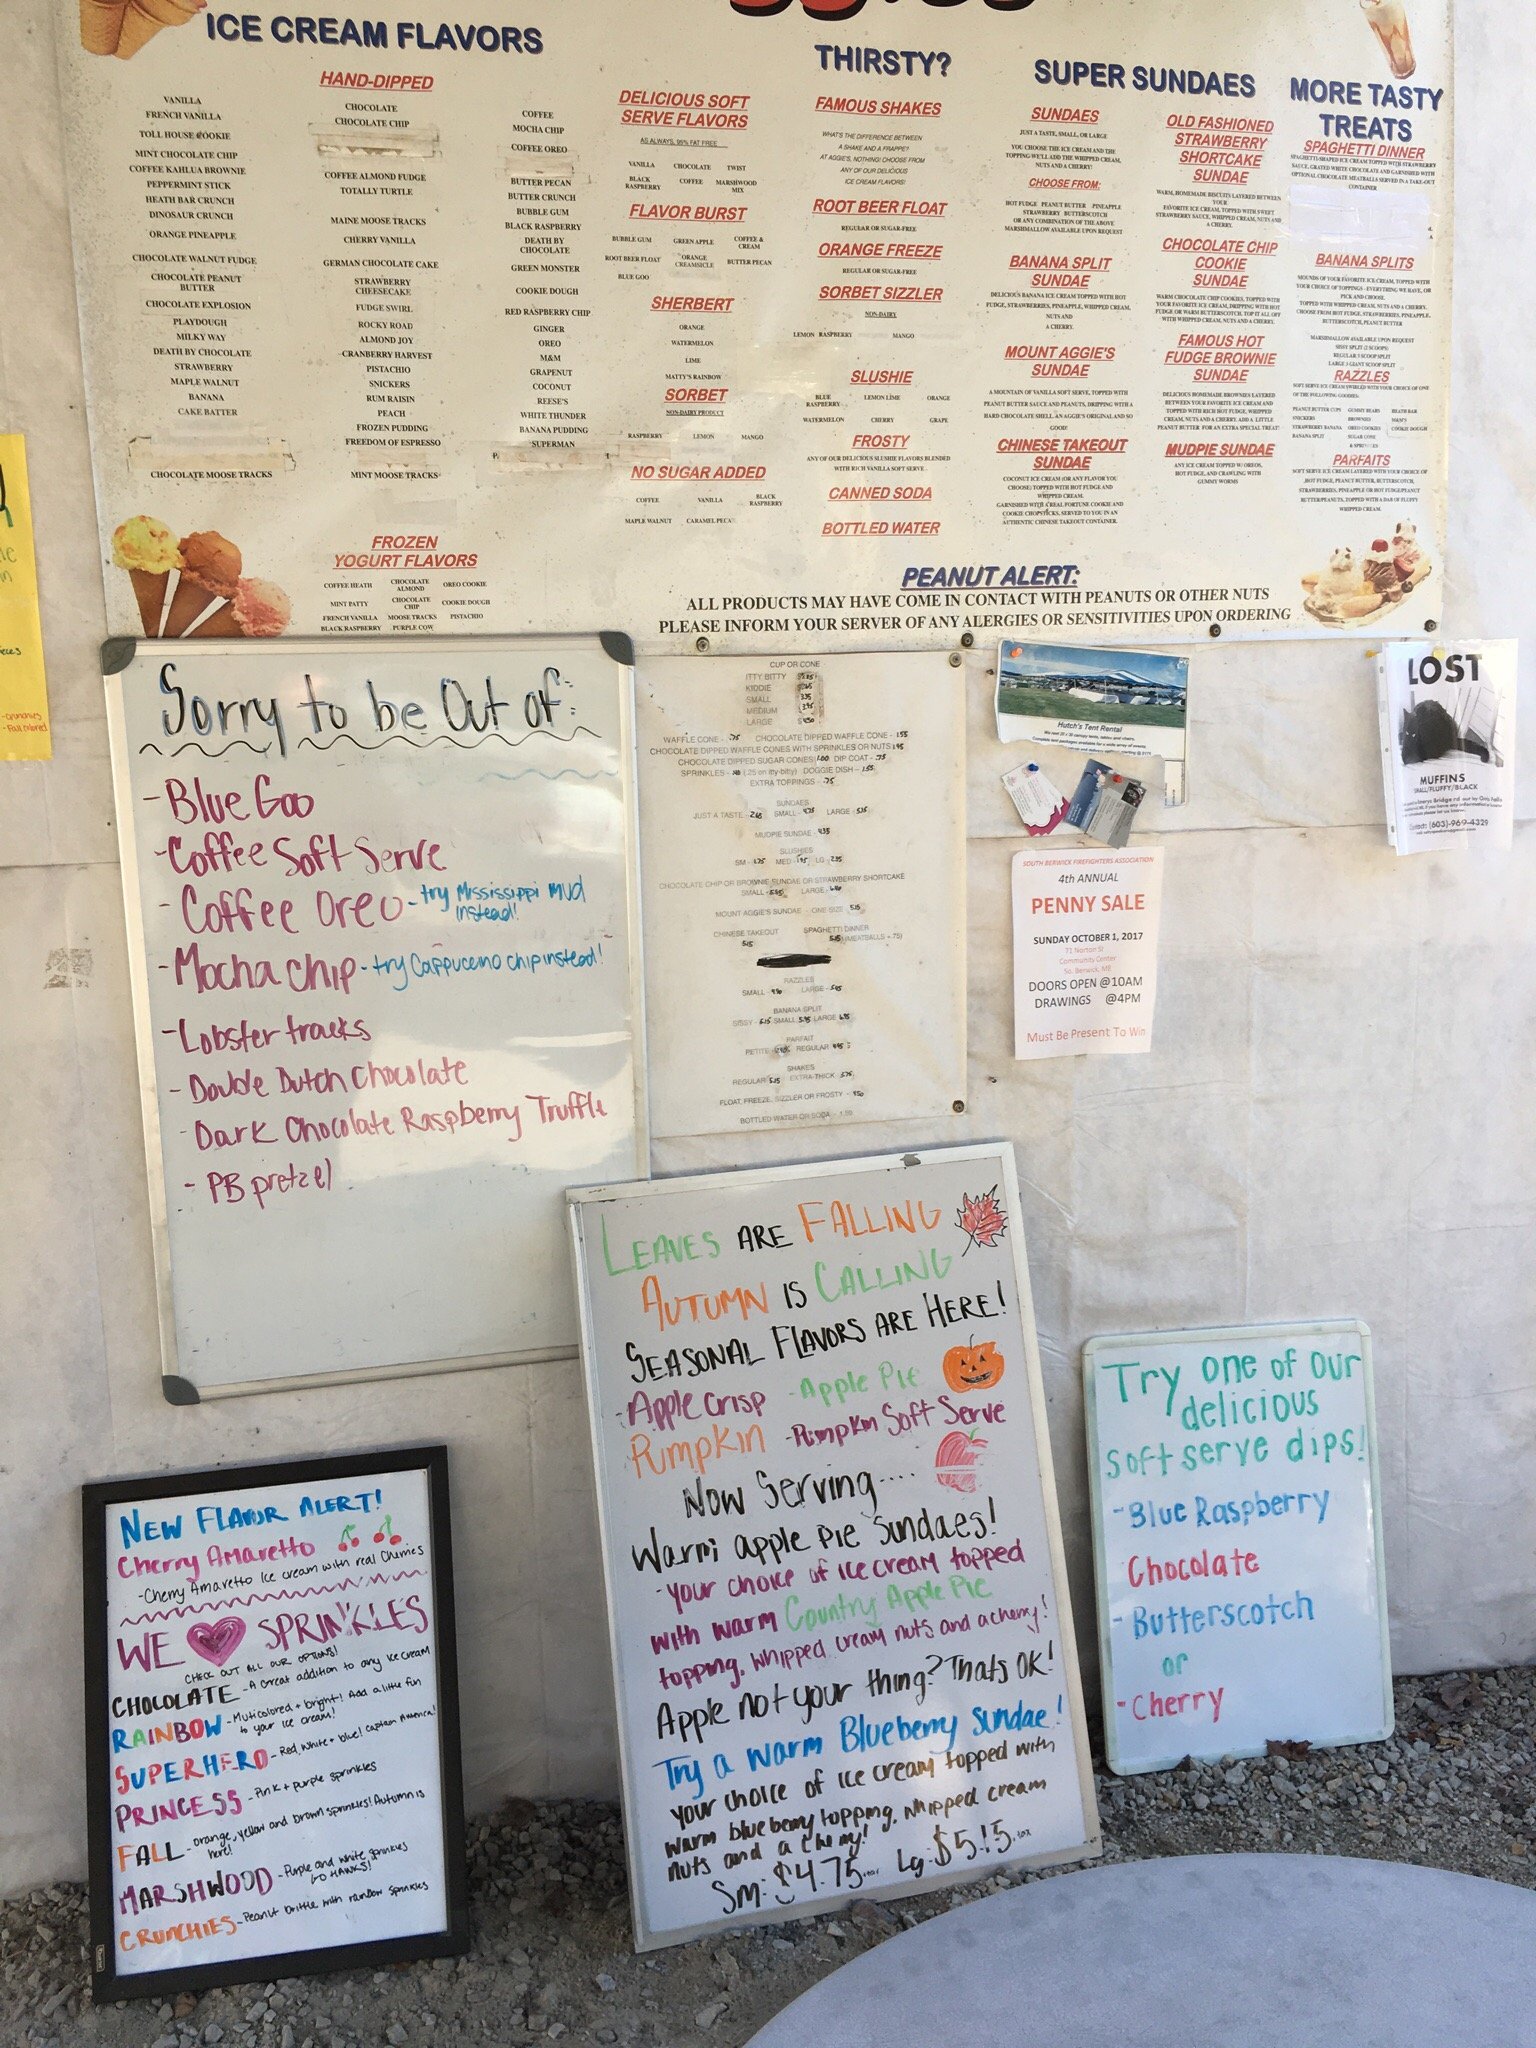 ICE CREAM FLAVORS
HAND-DIPPED
VANILLA
FRENCH VANILLA
TOLL HOUSE COOKIE
MINT CHOCOLATE CHIP
COFFEE KAHLUA BROWNIE
PEPPERMINT STICK
HEATH BAR CRUNCH
DINOSAUR CRUNCH
ORANGE PINEAPPLE
CHOCOLATE WALNUT FUDGE
CHOCOLATE PEANUT
BUTTER
CHOCOLATE EXPLOSION
PLAYDOUGH
MILKY WAY
DEATH BY CHOCOLATE
STRAWBERRY
MAPLE WALNUT
BANANA
CAKE BATTER
CHOCOLATE MOOSE TRACKS
CHOCOLATE
CHOCOLATE CHIP
COFFEE ALMOND FUDGE
TOTALLY TURTLE
MAINE MOOSE TRACKS
CHERRY VANILLA
GERMAN CHOCOLATE CAKE
STRAWBERRY
CHEESECAKE
FUDGE SWIRL
ROCKY ROAD
ALMOND JOY
CRANBERRY HARVEST
PISTACHIO
SNICKERS
RUM RAISIN
PEACH
FROZEN PUDDING
FREEDOM OF ESPRESSO
MINT MOOSE TRACKS
COFFEE
MOCHA CHIP
COFFEE OREO
BUTTER PECAN
BUTTER CRUNCH
BUBBLE GUM
BLACK RASPBERRY
DEATH BY
CHOCOLATE
GREEN MONSTER
COOKIE DOUGH
RED RASPBERRY CHIP
GINGER
OREO
M&M
GRAPENUT
COCONUT
REESE'S
WHITE THUNDER
BANANA PUDDING
SUPERMAN
FROZEN
YOGURT FLAVORS
COFFEE HEATH CHOCOLATE ALMOND OREO COOKIE
MINT PATTY CHOCOLATE CHIP COOKIE DOUGH
FRENCH VANILLA MOOSE TRACKS PISTACHIO
BLACK RASPBERRY PURPLE COW
DELICIOUS SOFT
SERVE FLAVORS
AS ALWAYS, 95% FAT FREE
VANILLA CHOCOLATE TWIST
BLACK RASPBERRY COFFEE MARSHWOOD MIX
FLAVOR BURST
BUBBLE GUM GREEN APPLE COFFEE & CREAM
ROOT BEER FLOAT ORANGE CREAMSICLE BUTTER PECAN
BLUE GOO
SHERBERT
ORANGE
WATERMELON
LIME
MATTY'S RAINBOW
SORBET
NON-DAIRY PRODUCT
RASPBERRY LEMON MANGO
NO SUGAR ADDED
COFFEE VANILLA BLACK RASPBERRY
MAPLE WALNUT CARAMEL PECAN
THIRSTY?
FAMOUS SHAKES
WHAT'S THE DIFFERENCE BETWEEN
A SHAKE AND A FRAPPE?
AT AGGIE'S, NOTHING! CHOOSE FROM
ANY OF OUR DELICIOUS
ICE CREAM FLAVORS!
ROOT BEER FLOAT
REGULAR OR SUGAR-FREE
ORANGE FREEZE
REGULAR OR SUGAR-FREE
SORBET SIZZLER
NON-DAIRY
LEMON RASPBERRY MANGO
SLUSHIE
BLUE RASPBERRY LEMON LIME ORANGE
WATERMELON CHERRY GRAPE
FROSTY
ANY OF OUR DELICIOUS SLUSHIE FLAVORS BLENDED
WITH RICH VANILLA SOFT SERVE
CANNED SODA
BOTTLED WATER
SUPER SUNDAES
SUNDAES
JUST A TASTE, SMALL, OR LARGE
YOU CHOOSE THE ICE CREAM AND THE
TOPPING WE'LL ADD THE WHIPPED CREAM,
NUTS AND A CHERRY!
CHOOSE FROM:
HOT FUDGE PEANUT BUTTER PINEAPPLE
STRAWBERRY BUTTERSCOTCH
OR ANY COMBINATION OF THE ABOVE
MARSHMALLOW AVAILABLE UPON REQUEST
BANANA SPLIT
SUNDAE
DELICIOUS BANANA ICE CREAM TOPPED WITH HOT
FUDGE, STRAWBERRIES, PINEAPPLE, WHIPPED CREAM,
NUTS AND
A CHERRY.
MOUNT AGGIE'S
SUNDAE
A MOUNTAIN OF VANILLA SOFT SERVE, TOPPED WITH
PEANUT BUTTER SAUCE AND PEANUTS, DRIPPING WITH A
HARD CHOCOLATE SHELL. AN AGGIE'S ORIGINAL AND SO
GOOD!
CHINESE TAKEOUT
SUNDAE
COCONUT ICE CREAM (OR ANY FLAVOR YOU
CHOOSE) TOPPED WITH HOT FUDGE AND
WHIPPED CREAM.
GARNISHED WITH A REAL FORTUNE COOKIE AND
COOKIE CHOPSTICKS, SERVED TO YOU IN AN
AUTHENTIC CHINESE TAKEOUT CONTAINER.
OLD FASHIONED
STRAWBERRY
SHORTCAKE
SUNDAE
WARM, HOMEMADE BISCUITS LAYERED BETWEEN
YOUR
FAVORITE ICE CREAM, TOPPED WITH SWEET
STRAWBERRY SAUCE, WHIPPED CREAM, NUTS AND
A CHERRY.
CHOCOLATE CHIP
COOKIE
SUNDAE
WARM CHOCOLATE CHIP COOKIES, TOPPED WITH
YOUR FAVORITE ICE CREAM, DRIPPING WITH HOT
FUDGE OR WARM BUTTERSCOTCH. TOP IT ALL OFF
WITH WHIPPED CREAM, NUTS AND A CHERRY.
FAMOUS HOT
FUDGE BROWNIE
SUNDAE
DELICIOUS HOMEMADE BROWNIES LAYERED
BETWEEN YOUR FAVORITE ICE CREAM AND
TOPPED WITH RICH HOT FUDGE, WHIPPED
CREAM, NUTS AND A CHERRY. ADD A LITTLE
PEANUT BUTTER FOR AN EXTRA SPECIAL TREAT!
MUDPIE SUNDAE
ANY ICE CREAM TOPPED W/ OREOS,
HOT FUDGE, AND CRAWLING WITH
GUMMY WORMS
MORE TASTY
TREATS
SPAGHETTI DINNER
SPAGHETTI-SHAPED ICE CREAM TOPPED WITH STRAWBERRY
SAUCE, GRATED WHITE CHOCOLATE AND GARNISHED WITH
OPTIONAL CHOCOLATE MEATBALLS SERVED IN A TAKE-OUT
CONTAINER
BANANA SPLITS
MOUNDS OF YOUR FAVORITE ICE CREAM, TOPPED WITH
YOUR CHOICE OF TOPPINGS - EVERYTHING WE HAVE, OR
PICK AND CHOOSE.
TOPPED WITH WHIPPED CREAM, NUTS AND A CHERRY.
CHOOSE FROM HOT FUDGE, STRAWBERRIES, PINEAPPLE,
BUTTERSCOTCH, PEANUT BUTTER
MARSHMALLOW AVAILABLE UPON REQUEST
SISSY SPLIT (2 SCOOPS)
REGULAR 3 SCOOP SPLIT
LARGE 3 GIANT SCOOP SPLIT
RAZZLES
SOFT SERVE ICE CREAM SWIRLED WITH YOUR CHOICE OF ONE
OF THE FOLLOWING GOODIES:
PEANUT BUTTER CUPS GUMMY BEARS HEATH BAR
SNICKERS BROWNIES M&M'S
STRAWBERRY BANANA OREO COOKIES COOKIE DOUGH
BANANA SPLIT SUGAR CONE
& SPRINKLES
PARFAITS
SOFT SERVE ICE CREAM LAYERED WITH YOUR CHOICE OF
HOT FUDGE, PEANUT BUTTER, BUTTERSCOTCH,
STRAWBERRIES, PINEAPPLE OR HOT FUDGE/PEANUT
BUTTER/PEANUTS, TOPPED WITH A DAB OF FLUFFY
WHIPPED CREAM.
PEANUT ALERT:
ALL PRODUCTS MAY HAVE COME IN CONTACT WITH PEANUTS OR OTHER NUTS
PLEASE INFORM YOUR SERVER OF ANY ALERGIES OR SENSITIVITIES UPON ORDERING
Sorry to be Out of:
- Blue Goo
- Coffee Soft Serve
- Coffee Oreo - try Mississippi Mud
instead!
- Mocha chip - try Cappuccino chip instead!
- Lobster tracks
- Double Dutch Chocolate
- Dark Chocolate Raspberry Truffle
- PB pretzel
CUP OR CONE
ITTY BITTY
KIDDIE
SMALL
MEDIUM
LARGE
WAFFLE CONE - .75 CHOCOLATE DIPPED WAFFLE CONE - 1.55
CHOCOLATE DIPPED WAFFLE CONES WITH SPRINKLES OR NUTS 1.95
CHOCOLATE DIPPED SUGAR CONES 1.00 DIP COAT - .75
SPRINKLES - (.25 on itty-bitty) DOGGIE DISH - 1.55
EXTRA TOPPINGS - .75
SUNDAES
JUST A TASTE - SMALL - 4.75 LARGE - 5.15
MUDPIE SUNDAE -
SLUSHIES
SM - MED - LG -
CHOCOLATE CHIP OR BROWNIE SUNDAE OR STRAWBERRY SHORTCAKE
SMALL - LARGE -
MOUNT AGGIE'S SUNDAE - ONE SIZE 5.15
CHINESE TAKEOUT SPAGHETTI DINNER
5.15 5.15 (MEATBALLS + .75)
RAZZLES
SMALL - LARGE -
BANANA SPLIT
SISSY - SMALL LARGE
PARFAIT
PETITE REGULAR
SHAKES
REGULAR EXTRA-THICK
FLOAT, FREEZE, SIZZLER OR FROSTY -
BOTTLED WATER OR SODA - 1.50
Hutch's Tent Rental
LOST
MUFFINS
SMALL/FLUFFY/BLACK
(603)-969-4329
SOUTH BERWICK FIREFIGHTERS ASSOCIATION
4th ANNUAL
PENNY SALE
SUNDAY OCTOBER 1, 2017
71 Norton St
Community Center
So. Berwick, ME
DOORS OPEN @10AM
DRAWINGS @4PM
Must Be Present To Win
LEAVES ARE FALLING
AUTUMN IS CALLING
SEASONAL FLAVORS ARE HERE!
- Apple Crisp - Apple Pie
PUMPKIN - Pumpkin Soft Serve
Now Serving....
Warm apple pie sundaes!
- your choice of ice cream topped
with warm Country Apple Pie
topping, whipped cream nuts and a cherry!
Apple not your thing? Thats OK!
Try a warm Blueberry Sundae!
your choice of ice cream topped with
warm blueberry topping, whipped cream
nuts and a cherry!
Sm: $4.75 +tax Lg: $5.15 +tax
NEW FLAVOR ALERT!
Cherry Amaretto
- Cherry Amaretto Ice cream with real Cherries
WE SPRINKLES
CHECK OUT ALL OUR OPTIONS!
CHOCOLATE - A Great addition to any ice cream
RAINBOW - Muticolored + bright! Add a little fun
to your ice cream!
SUPERHERO - Red, white + blue! Captain America!
PRINCESS - Pink + purple sprinkles
FALL - orange, yellow and brown sprinkles! Autumn is
here!
MARSHWOOD - Purple and white sprinkles
GO HAWKS!
CRUNCHIES - Peanut brittle with rainbow sprinkles
Try one of our
delicious
Soft serve dips!
- Blue Raspberry
Chocolate
- Butterscotch
or
- Cherry